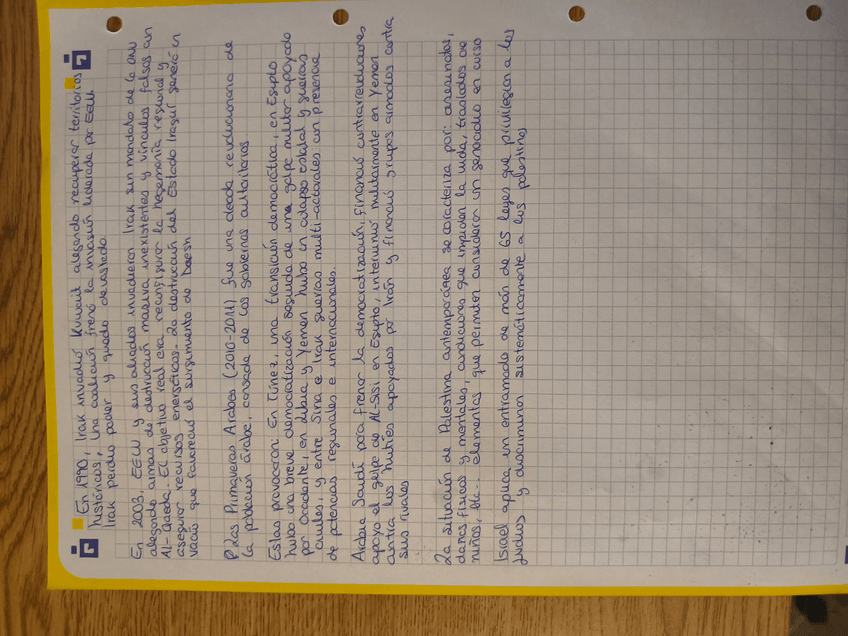 En 1990, Irak invadió Kuwait alegando recuperar territorios
históricos, una coalición frenó la invasión liderada por EEUU.
Irak perdió poder y quedó devastado.
En 2003, EEUU y sus aliados invadieron Irak sin mandato de la ONU
alegando armas de destrucción masiva inexistentes y vínculos falsos con
Al-Qaeda. El objetivo real era reconfigurar la hegemonía regional y
asegurar recursos energéticos. La destrucción del Estado Iraquí generó un
vacío que favoreció el surgimiento de Daesh
P. Las Primaveras Árabes (2010-2011) fue una oleada revolucionaria de
la población árabe, cansada de los gobiernos autoritarios
Estas provocaron: En Túnez, una transición democrática, en Egipto
hubo una breve democratización seguida de una golpe militar apoyado
por Occidente, en Libia y Yemen hubo un colapso estatal y guerras
civiles, y entre Siria e Irak guerras multi-actorales con presencia
de potencias regionales e internacionales.
Arabia Saudí para frenar la democratización, financió contrarrevoluciones
apoyó el golpe de Al-Sisi en Egipto, intervino militarmente en Yemen
contra los hutíes apoyados por Irán y financió grupos armados contra
sus rivales
La situación de Palestina contemporánea se caracteriza por: asesinatos,
daños físicos y mentales, condiciones que impiden la vida, traslados de
niños, etc.. elementos que permiten considerar un genocidio en curso
Israel aplica un entramado de más de 65 leyes que privilegian a los
judíos y discriminan sistemáticamente a los palestinos